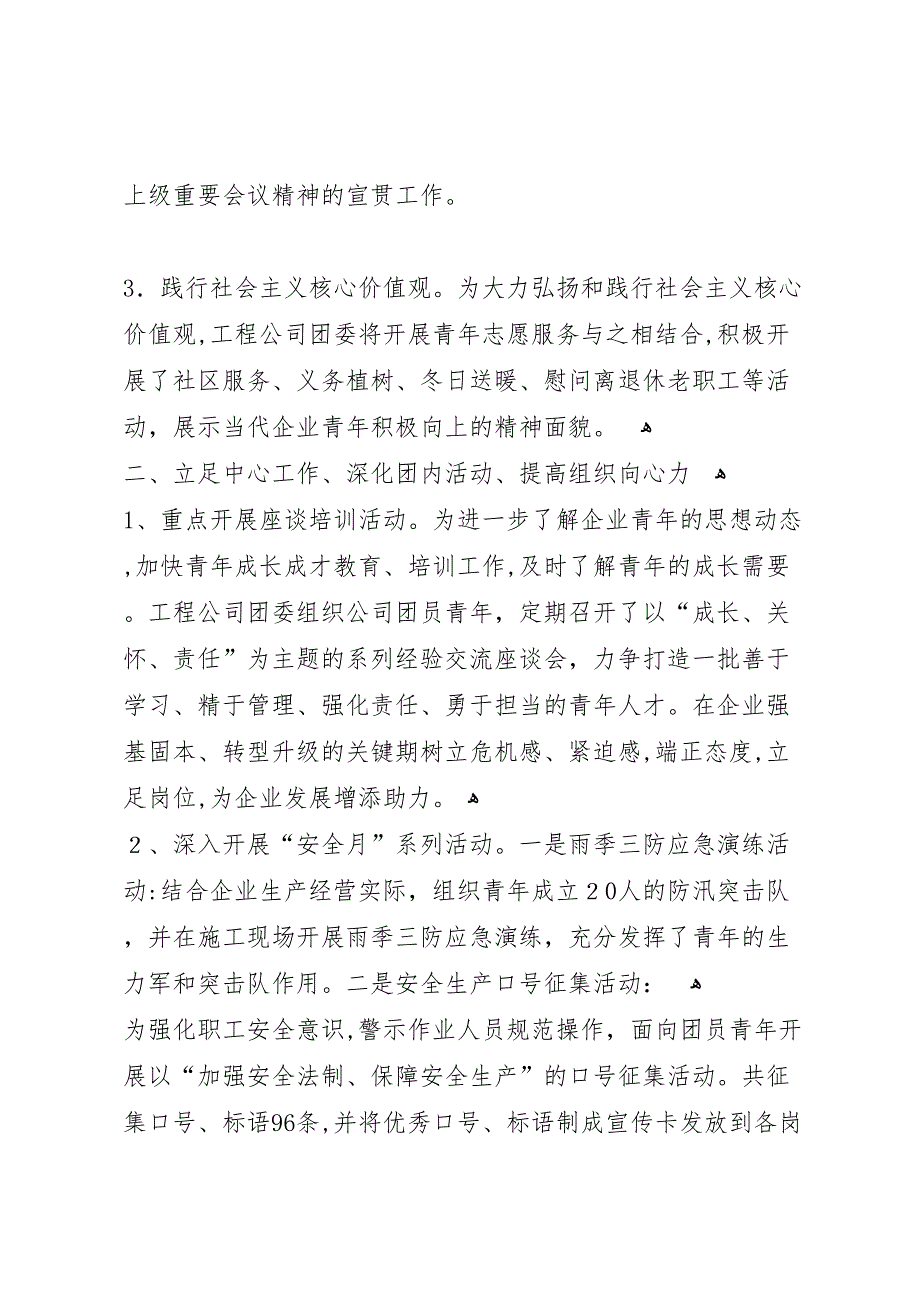 上级重要会议精神的宣贯工作。
3．践行社会主义核心价值观。为大力弘扬和践行社会主义核心
价值观,工程公司团委将开展青年志愿服务与之相结合,积极开
展了社区服务、义务植树、冬日送暖、慰问离退休老职工等活
动，展示当代企业青年积极向上的精神面貌。 ﻫ
二、立足中心工作、深化团内活动、提高组织向心力 ﻫ
1、重点开展座谈培训活动。为进一步了解企业青年的思想动态
,加快青年成长成才教育、培训工作,及时了解青年的成长需要
。工程公司团委组织公司团员青年，定期召开了以“成长、关
怀、责任”为主题的系列经验交流座谈会，力争打造一批善于
学习、精于管理、强化责任、勇于担当的青年人才。在企业强
基固本、转型升级的关键期树立危机感、紧迫感,端正态度,立
足岗位,为企业发展增添助力。 ﻫ
２、深入开展“安全月”系列活动。一是雨季三防应急演练活
动:结合企业生产经营实际，组织青年成立２0人的防汛突击队
，并在施工现场开展雨季三防应急演练，充分发挥了青年的生
力军和突击队作用。二是安全生产口号征集活动： ﻫ
为强化职工安全意识,警示作业人员规范操作，面向团员青年开
展以“加强安全法制、保障安全生产”的口号征集活动。共征
集口号、标语96条,并将优秀口号、标语制成宣传卡发放到各岗